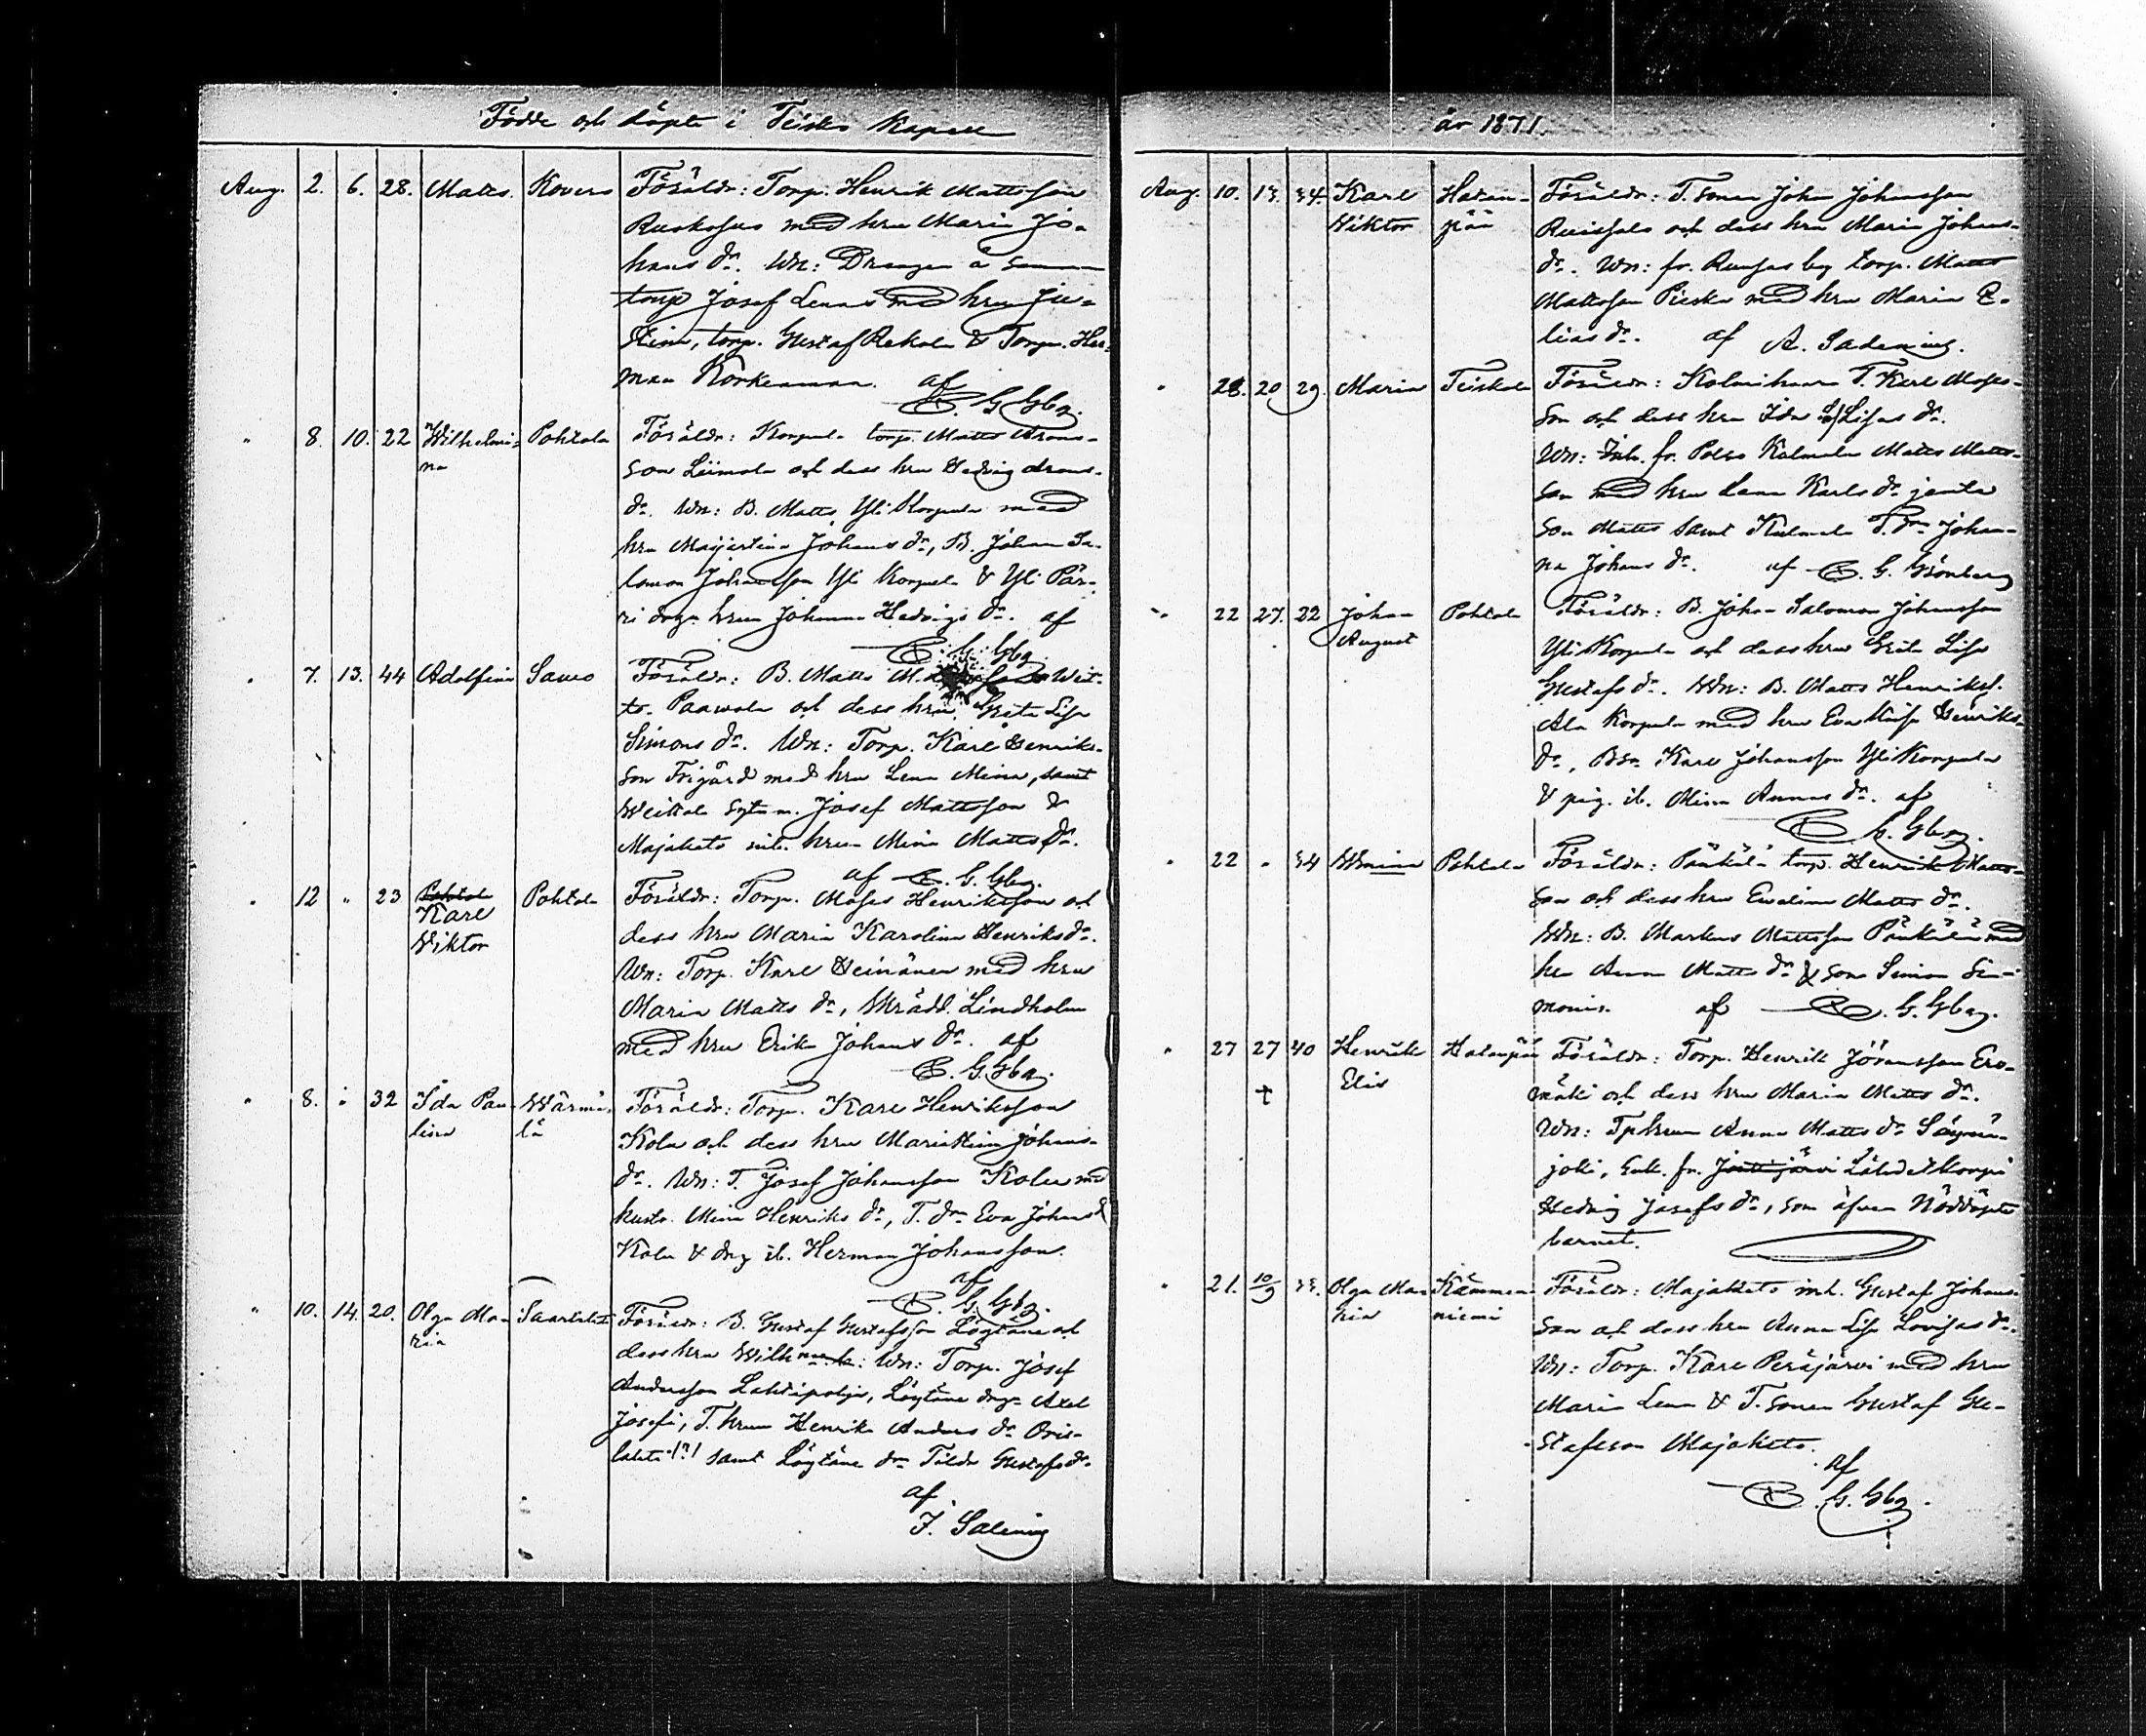 Födde och döpte i Teisko Kapell
Aug. 2. 6. 28. Matts. Kovero Föräldr: Torp. Henrik Mattsson
Ruokosuo med hru Maria Jo-
hans dr. Wn: Drengen å samma
torp Josef Lenas med hru Ju-
stina, torp. Gustaf Rekola & Torp. Her-
man Korkeamaa. af
C. G. Gbg.
" 8. 10. 22 Wilhelmi- Pohtola Föräldr: Korpula torp. Matts Arons-
na son Liimola och dess hru Hedvig Arons-
dr. Wn: B. Matts Yli Korpula med
hru Majastina Johans dr, B. Johan Sa-
lomon Johansson Yli Korpula & Yli Pär-
ri drgn hrun Johanna Hedvigs dr. af
C. G. Gbg.
" 7. 13. 44 Adolfina Savo Föräldr: B. Matts Weit-
to Paavola och dess hru Greta Lisa
Simons dr. Wn: Torp. Karl Henriks-
son Frigård med hru Lena Mina, samt
Weittola sytn.m. Josef Mattsson &
Majalato inh. hrun Mina Matts dr.
af C. G. Gbg.
" 12 " 23 Karl Pohtola Föräldr: Torp. Moses Henriksson och
Viktor dess hru Maria Karolina Henriks dr.
Wn: Torp. Karl Heinänen med hru
Maria Matts dr, Skrädd. Lindholm
med hru Erika Johans dr. af
C. G. Gbg.
" 8. " 32 Ida Pau- Wärmä- Föräldr: Torp. Karl Henriksson
lina lä Kolu och dess hru Mariastina Johans-
dr. Wn: T. Josef Johansson Kolu med
hustr. Mina Henriks dr, T. drn Eva Johans dr
Kolu & drg ib. Herman Johansson.
af
C. G. Gbg.
" 10. 14. 20. Olga Ma- Saarlaht Föräldr: B. Gustaf Gustafsson Löytäne och
ria dess hru Wilh. Wn: Torp. Josef
Andersson Lahdipohja, Löytäne drgn Axel
Josefi, T. hrun Henrika Anders dr Oris-
lahti (?) samt Löytäne drn Tilda Gustafs dr.
af
J. Salening
år 1871
Aug. 10. 13. 34 Karl Hatan- Föräldr: T. sonen Johan Johansson
Viktor pää Ruissalo och dess hru Maria Johans-
dr. Wn: fr. Ruufas by torp. Matts
Mattsson Pieska med hru Maria E-
lias dr. af A. Sadening.
" 28. 20 29. Maria Teiskola Föräldr: Kolmihaara T. Karl Moses-
son och dess hru Ida Lisas dr.
Wn: Inh. fr. Polso Kulmala Matts Matts-
son med hru Lena Karls dr jemte
son Matts samt Kulmala T. drn Johan-
na Johans dr. af C. G. Grönberg
" 22 27. 32 Johan Pohtola Föräldr: B. Johan Salomon Johansson
August Yli Korpula och dess hru Greta Lisa
Gustafs dr. Wn: B. Matts Henriks.
Ala Korpula med hru Eva Lisa Henriks-
dr, Bsn Karl Johansson Yli Korpula
& pig. ib. Mina Annas dr. af
C. G. Gbg.
" 22 " 34 Wmina Pohtola Föräldr: Pänkälä torp. Henrik Matts-
son och dess hru Evelina Matts dr.
Wn: B. Markus Mattsson Pänkälä med
hu Anna Matts dr & son Simon Si-
monis. af C. G. Gbg.
" 27 27 40 Henrik Hatanpää Föräldr: Torp. Henrik Jöransson Ero-
† Elis mäki och dess hru Maria Matts dr.
Wn: Tphrun Anna Matts dr Säynä-
joki, Enk. fr. Lähdekorpi
Hedvig Josefs dr, som äfven nöddöpte
barnet.
" 21. 10/9 33. Olga Ma- Kämmen- Föräldr: Majalato inh. Gustaf Johans-
ria niemi son och dess hru Anna Lisa Lovisas dr.
Wn: Torp. Karl Peräjärvi med hru
Maria Lena & T. sonen Gustaf Gu-
stafsson Majalato.
af
C. G. Gbg.